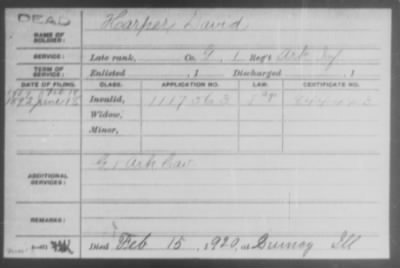 DEAD
Harper, David
NAME OF SOLDIER:
SERVICE: Late rank, Co. G, 1 Reg't Ark Inf
TERM OF SERVICE: Enlisted , 1 Discharged , 1
DATE OF FILING. CLASS. APPLICATION NO. LAW. CERTIFICATE NO.
1892 June 18 Invalid, 1117063
Widow,
Minor,
G 1 Ark Cav
ADDITIONAL SERVICES:
REMARKS:
Died Feb 15, 1920, at Quincy Ill